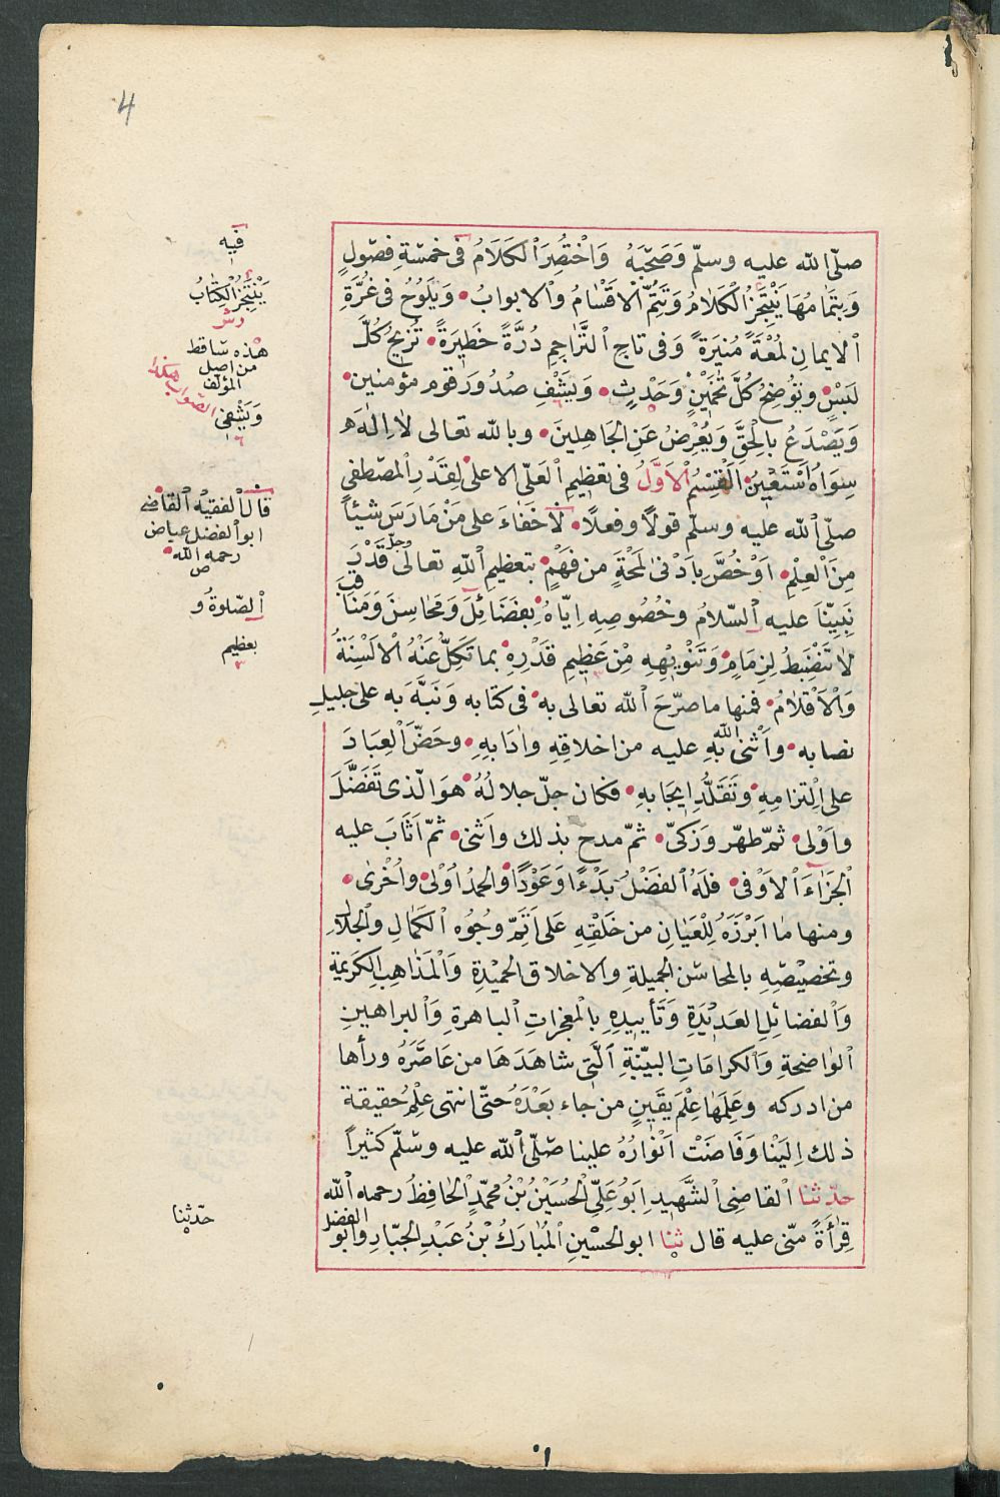 4
صلّى الله عليه وسلّم وَصَحْبَهُ وَاخْتُصِرَ الكَلَامُ فى خمسَةِ فصُولٍ
وَبِتَمَامِهَا يَنْتَجِزُ الْكَلامُ وَتَتِمُّ الْاَقْسَامُ وْالابوابُ • وَيَلوُحُ فى غُرَّةِ
الايمانِ لمُعْةً مُنيَرةً وَفى تاجِ التَّرَاجِمِ دُرَّةً خَطيَرةً • تُزيحُ كُلَّ
لَبْسٍ • وتوُضِحُ كُلَّ تخمْينٍ وَحَدْثٍ • وَيَشْفِ صُدُورَ قومٍ مؤمنين •
وَيَصْدَعُ بالحَقِّ وَيُعْرِضُ عَنِ الجَاهِلينَ • وبالله تعالى لا اِلٰهَ
سِوَاهُ اَسْتَعينُ • اَلْقِسْمُ الْاَوَّلُ فى تعظيمِ العَلّى الاعلىٰ لِقَدْرِ المصَطفى
صلّى الله عليه وسلّم قولًا وفعلًا • لا خَفاءَ على مَنْ مَارَسَ شيئاً
مِنَ العِلْمِ • اَوْ خُصَّ بِاَدْنىٰ لمَحْةٍ من فَهْمٍ • بتعظيمِ اللهِ تعالى وجلّ قَدْرَ
نَبِيّنَا عليه السّلامُ وخُصُوصِهِ اِيّاهُ • بِفَضَائِلَ وَمَحَاسِنَ وَمَنَاقِبَ
لا تَنْضَبِطُ لِزِمَامٍ • وَتَنْوْيهِهِ مِنْ عَظِيمِ قَدْرِهِ • بما تَكِلُّ عَنْهُ الْالسِنَةُ
وَالْاَقْلامُ • فمنها ما صرّحَ الله تعالى به • فى كتابه وَنَبَّهَ به على جليلِ
نصابه • واَثنى الله بِهِ عليه من اخلاقِهِ وادَابِهِ • وحَضَّ الْعِبَادَ
على الْتِزامِهِ • وتَقَلُّدِ اِيجَابِهِ • فكان جلّ جلالُهُ • هوَ الّذى تَفَضَّلَ
واَوْلى • ثمّ طهّر وَزَكىّ • ثمّ مدح بذلك واَثنى • ثمّ اَثَابَ عليه
الْجَزَاءَ الْاَوْفى • فلَهُ الفَضْلُ بَدْءًا وَعَوْدًا • والحمدُ اوْلى • واُخْرٰى •
ومنها مَا اَبْرَزَهُ لِلْعَيَانِ من خَلْقِهِ عَلى اَتَمِّ وجُوُه الكَمَالِ والْجَلالِ
وتخصيصهِ بالمحاسَن الجميلةِ والاخلاقِ الحميْدةِ وَالْمَذَاهِبِ الكَريمَةِ
وَالْفضائلِ العَديْدَةِ وَتَأييدِهِ بِالْمعجزاتِ الباهرةِ وَالبراهينِ
الوَاضحةِ وَالكرامَاتِ البيّنةِ الَّتى شاهَدَهَا من عَاصَرَهُ ورأها
من ادركه وعَلِمَهَا عِلْمَ يَقينٍ من جاء بَعْدَهُ حتّى انتهى عِلْمُ حقيقة
ذلك اِلَيْنَا وَفَاضَتْ اَنْوَارُهُ علينا صَلّى الله عليه وسَلّم كثيراً
حدّثنا القاضى الشَّهيد اَبوُ عَلِىّ الحُسَيْنُ بْنُ محمّدٍ الحَافِظُ رحمه الله
قِرَأةً منّى عليه قال ثنا ابو الحُسْينِ الْمُبَارَكُ بْنُ عَبْدِ الجَبّارِ وابو الفضل
فيه
يَنْتَجِزُ الْكِتَابُ
هذه ساقط
من اصل
المؤلف
الصّواب هكذا
وَيَشْفى
قال الفقيه القاضى
ابو الفضل عياض
رحمه الله
ص
الصّلوةُ و
بعظيم
حدّثنا